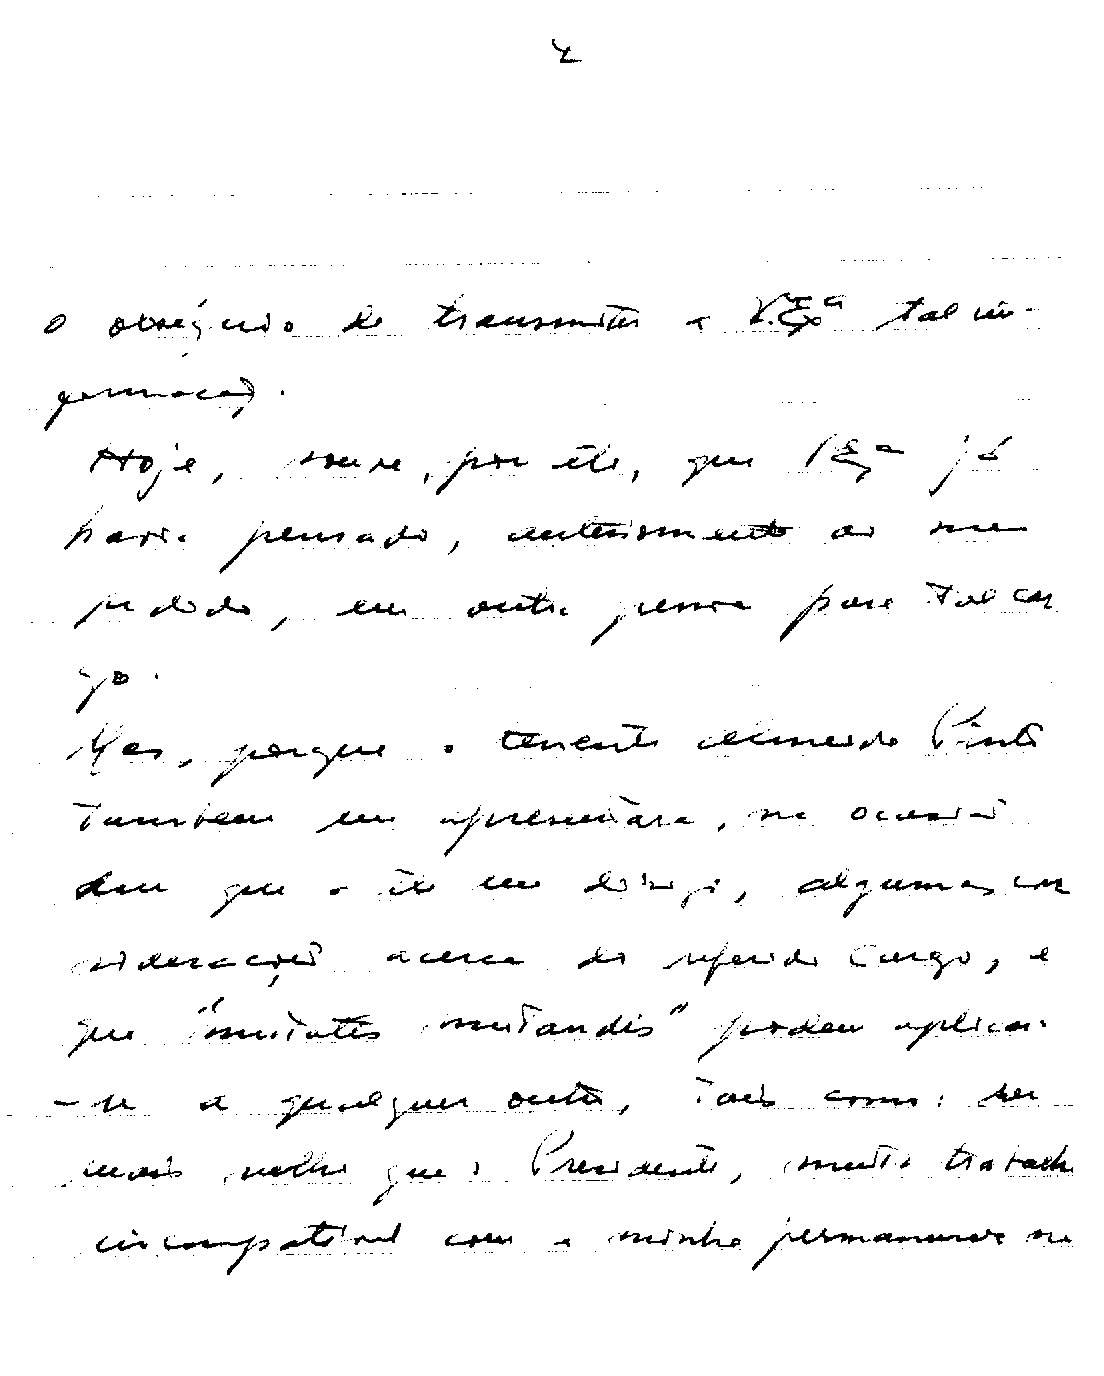 2
o obséquio de transmitir a V.Exª tal in-
formação.
Hoje, soube, por êle, que V.Exª já
havia pensado, anteriormente ao meu
pedido, em outra pessoa para tal car
go.
Mas, porque o tenente Almeida Pinto
tambem me apresentara, na ocasião
em que a êle me dirigi, algumas con
siderações acerca do referido cargo, e
que "mutatis mutandis" podem aplicar-
-se a qualquer outro, tais como: ser
mais velho que o Presidente, muito trabalho
incompatível com a minha permanencia na